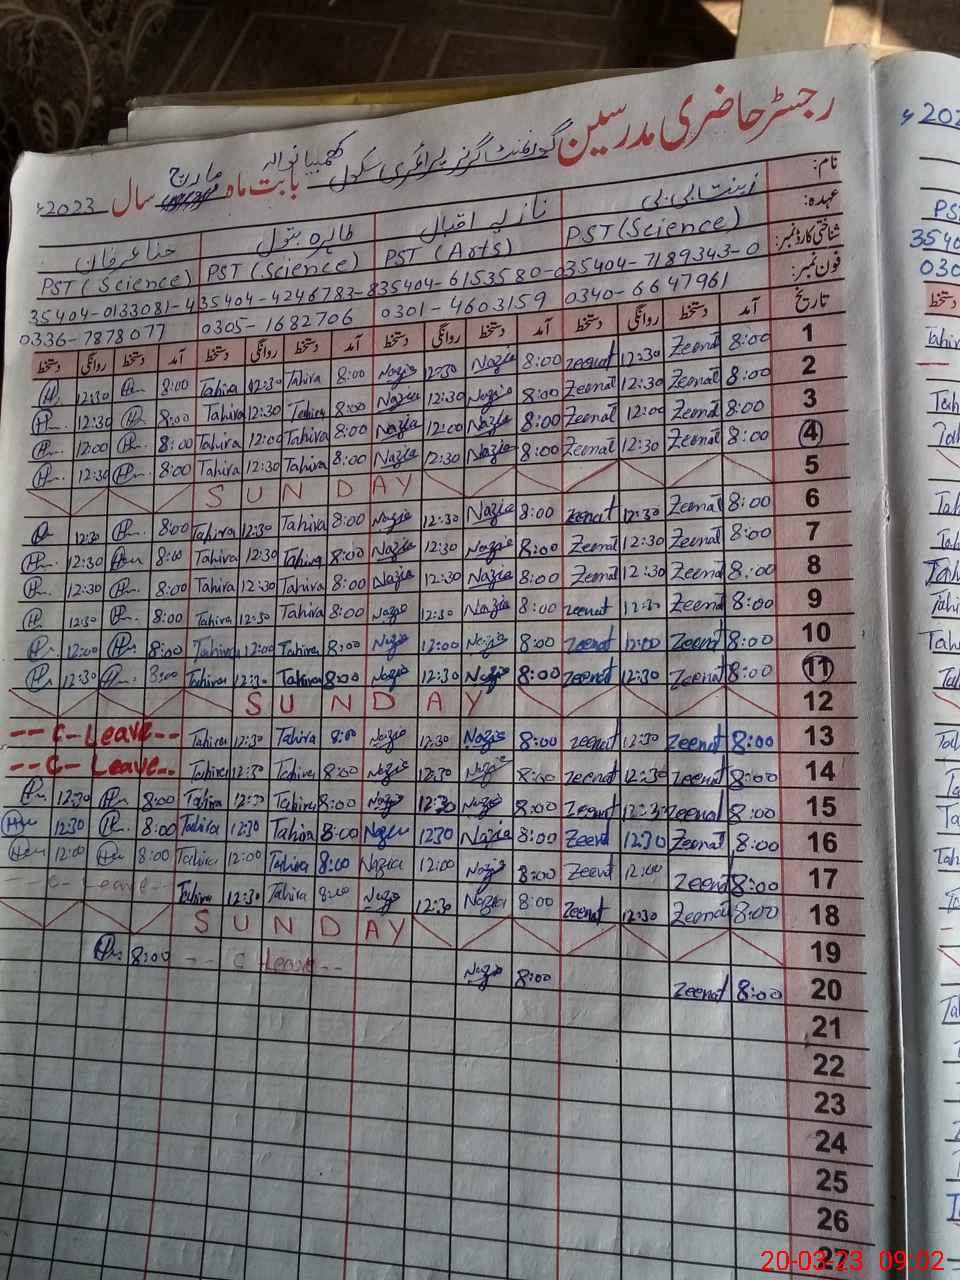 رجسٹر حاضری مدرسین گورنمنٹ گرلز پرائمری سکول کھمبیانوالہ بابت ماہ مارچ سال 2023ء
نام: زینت بی بی نازیہ اقبال طاہرہ بتول حنا عرفان
عہدہ: PST (Science) PST (Arts) PST (Science) PST (Science)
شناختی کارڈ نمبر: 35404-7189343-0 35404-6153580-0 35404-4246783-8 35404-0133081-4
فون نمبر: 0340-6647961 0301-4603159 0305-1682706 0336-7878077
تاریخ آمد دستخط روانگی دستخط آمد دستخط روانگی دستخط آمد دستخط روانگی دستخط آمد دستخط روانگی دستخط
1 8:00 Zeenat 12:30 Zeenat 8:00 Nazia 12:30 Nazia 8:00 Tahira 12:30 Tahira 8:00 12:30
2 8:00 Zeenat 12:30 Zeenat 8:00 Nazia 12:30 Nazia 8:00 Tahira 12:30 Tahira 8:00 12:30
3 8:00 Zeenat 12:00 Zeenat 8:00 Nazia 12:00 Nazia 8:00 Tahira 12:00 Tahira 8:00 12:00
4 8:00 Zeenat 12:30 Zeenat 8:00 Nazia 12:30 Nazia 8:00 Tahira 12:30 Tahira 8:00 12:30
5 SUNDAY
6 8:00 Zeenat 12:30 Zeenat 8:00 Nazia 12:30 Nazia 8:00 Tahira 12:30 Tahira 8:00 12:30
7 8:00 Zeenat 12:30 Zeenat 8:00 Nazia 12:30 Nazia 8:00 Tahira 12:30 Tahira 8:00 12:30
8 8:00 Zeenat 12:30 Zeenat 8:00 Nazia 12:30 Nazia 8:00 Tahira 12:30 Tahira 8:00 12:30
9 8:00 Zeenat 12:30 Zeenat 8:00 Nazia 12:30 Nazia 8:00 Tahira 12:30 Tahira 8:00 12:30
10 8:00 Zeenat 12:00 Zeenat 8:00 Nazia 12:00 Nazia 8:00 Tahira 12:00 Tahira 8:00 12:00
11 8:00 Zeenat 12:30 Zeenat 8:00 Nazia 12:30 Nazia 8:00 Tahira 12:30 Tahira 8:00 12:30
12 SUNDAY
13 8:00 Zeenat 12:30 Zeenat 8:00 Nazia 12:30 Nazia 8:00 Tahira 12:30 Tahira --C-Leave--
14 8:00 Zeenat 12:30 Zeenat 8:00 Nazia 12:30 Nazia 8:00 Tahira 12:30 Tahira --C- Leave--
15 8:00 Zeenat 12:30 Zeenat 8:00 Nazia 12:30 Nazia 8:00 Tahira 12:30 Tahira 8:00 12:30
16 8:00 Zeenat 12:30 Zeenat 8:00 Nazia 1230 Nazia 8:00 Tahira 12:30 Tahira 8:00 12:30
17 8:00 Zeenat 12:00 Zeenat 8:00 Nazia 12:00 Nazia 8:00 Tahira 12:00 Tahira 8:00 12:00
18 8:00 Zeenat 12:30 Zeenat 8:00 Nazia 12:30 Nazia 8:00 Tahira 12:30 Tahira --C- Leave--
19 SUNDAY
20 8:00 Zeenat 8:00 Nazia -- C Leave-- 8:00
21
22
23
24
25
26
27
20-03-23 09:02